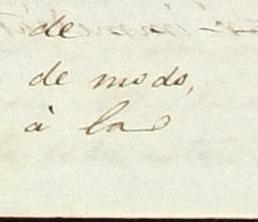 de
de modo,
à la